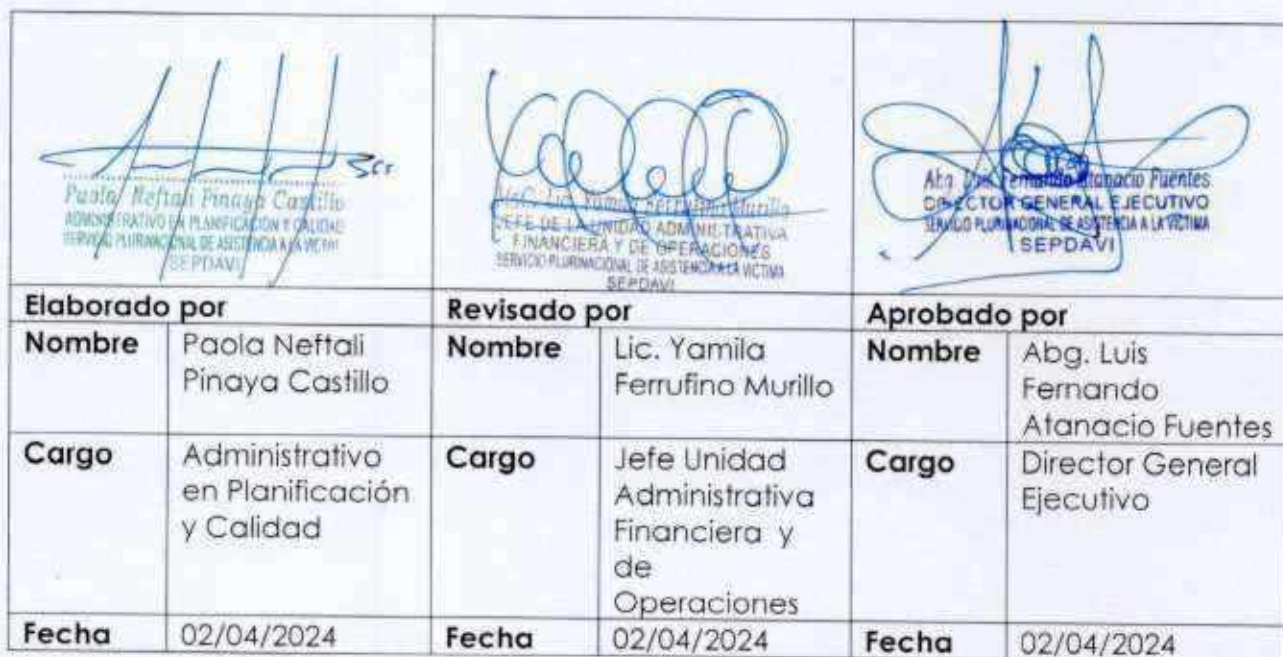 Paola Neftali Pinaya Castillo
ADMINISTRATIVO EN PLANIFICACIÓN Y CALIDAD
SERVICIO PLURINACIONAL DE ASISTENCIA A LA VICTIMA
SEPDAVI
JEFE DE LA UNIDAD ADMINISTRATIVA
FINANCIERA Y DE OPERACIONES
SERVICIO PLURINACIONAL DE ASISTENCIA A LA VICTIMA
SEPDAVI
Abg. Luis Fernando Atanacio Fuentes
DIRECTOR GENERAL EJECUTIVO
SERVICIO PLURINACIONAL DE ASISTENCIA A LA VÍCTIMA
SEPDAVI
Elaborado por
Revisado por
Aprobado por
Nombre
Paola Neftali
Pinaya Castillo
Nombre
Lic. Yamila
Ferrufino Murillo
Nombre
Abg. Luis
Fernando
Atanacio Fuentes
Cargo
Administrativo
en Planificación
y Calidad
Cargo
Jefe Unidad
Administrativa
Financiera y
de
Operaciones
Cargo
Director General
Ejecutivo
Fecha
02/04/2024
Fecha
02/04/2024
Fecha
02/04/2024